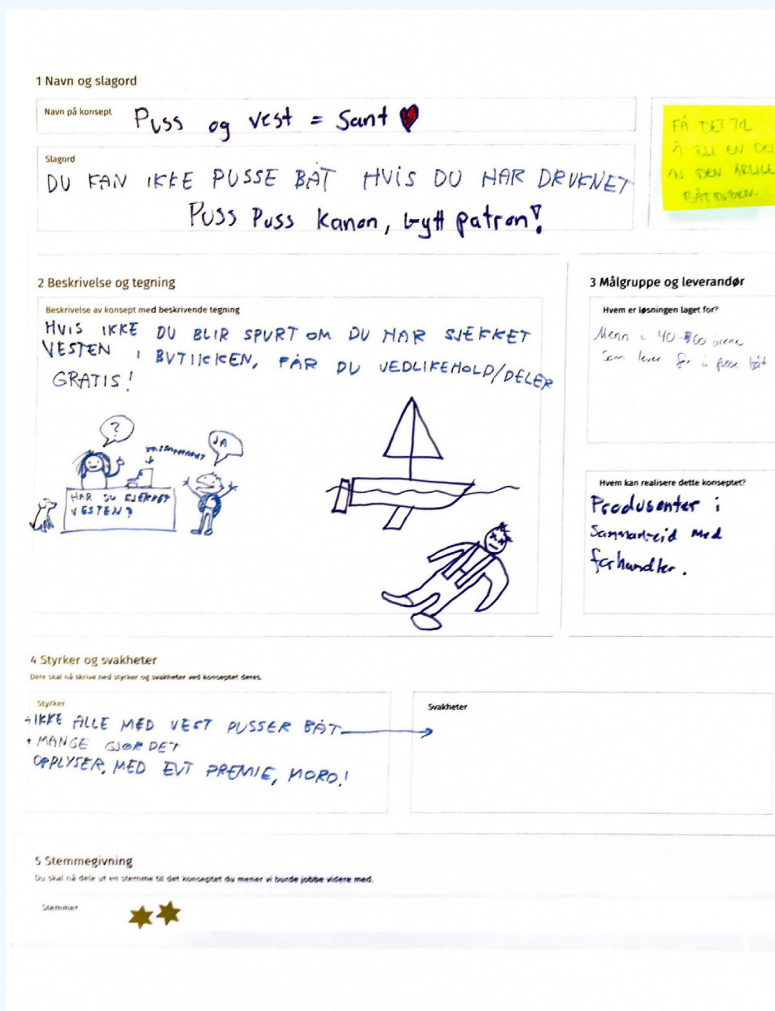 1 Navn og slagord
Navn på konsept
Puss og vest = Sant
Slagord
DU KAN IKKE PUSSE BÅT HVIS DU HAR DRUKNET
Puss Puss kanon, bytt patron!
FÅ DET TIL
Å BLI EN DEL
AV DEN ÅRLIGE
BÅTPUSSEN.
2 Beskrivelse og tegning
Beskrivelse av konsept med beskrivende tegning
HVIS IKKE DU BLIR SPURT OM DU HAR SJEKKET
VESTEN I BUTIKKEN, FÅR DU VEDLIKEHOLD/DELER
GRATIS!
?
JA
HAR DU SJEKKET
VESTEN?
3 Målgruppe og leverandør
Hvem er løsningen laget for?
Menn i 40-60 årene
Som lever for å pusse båt
Hvem kan realisere dette konseptet?
Produsenter i
Sammarbeid med
forhandler.
4 Styrker og svakheter
Dere skal nå skrive ned styrker og svakheter ved konseptet deres.
Styrker
+IKKE ALLE MED VEST PUSSER BÅT
+ MANGE GJØR DET
OPPLYSER, MED EVT PREMIE, MORO!
Svakheter
5 Stemmegivning
Du skal nå dele ut en stemme til det konseptet du mener vi burde jobbe videre med.
Stemmer